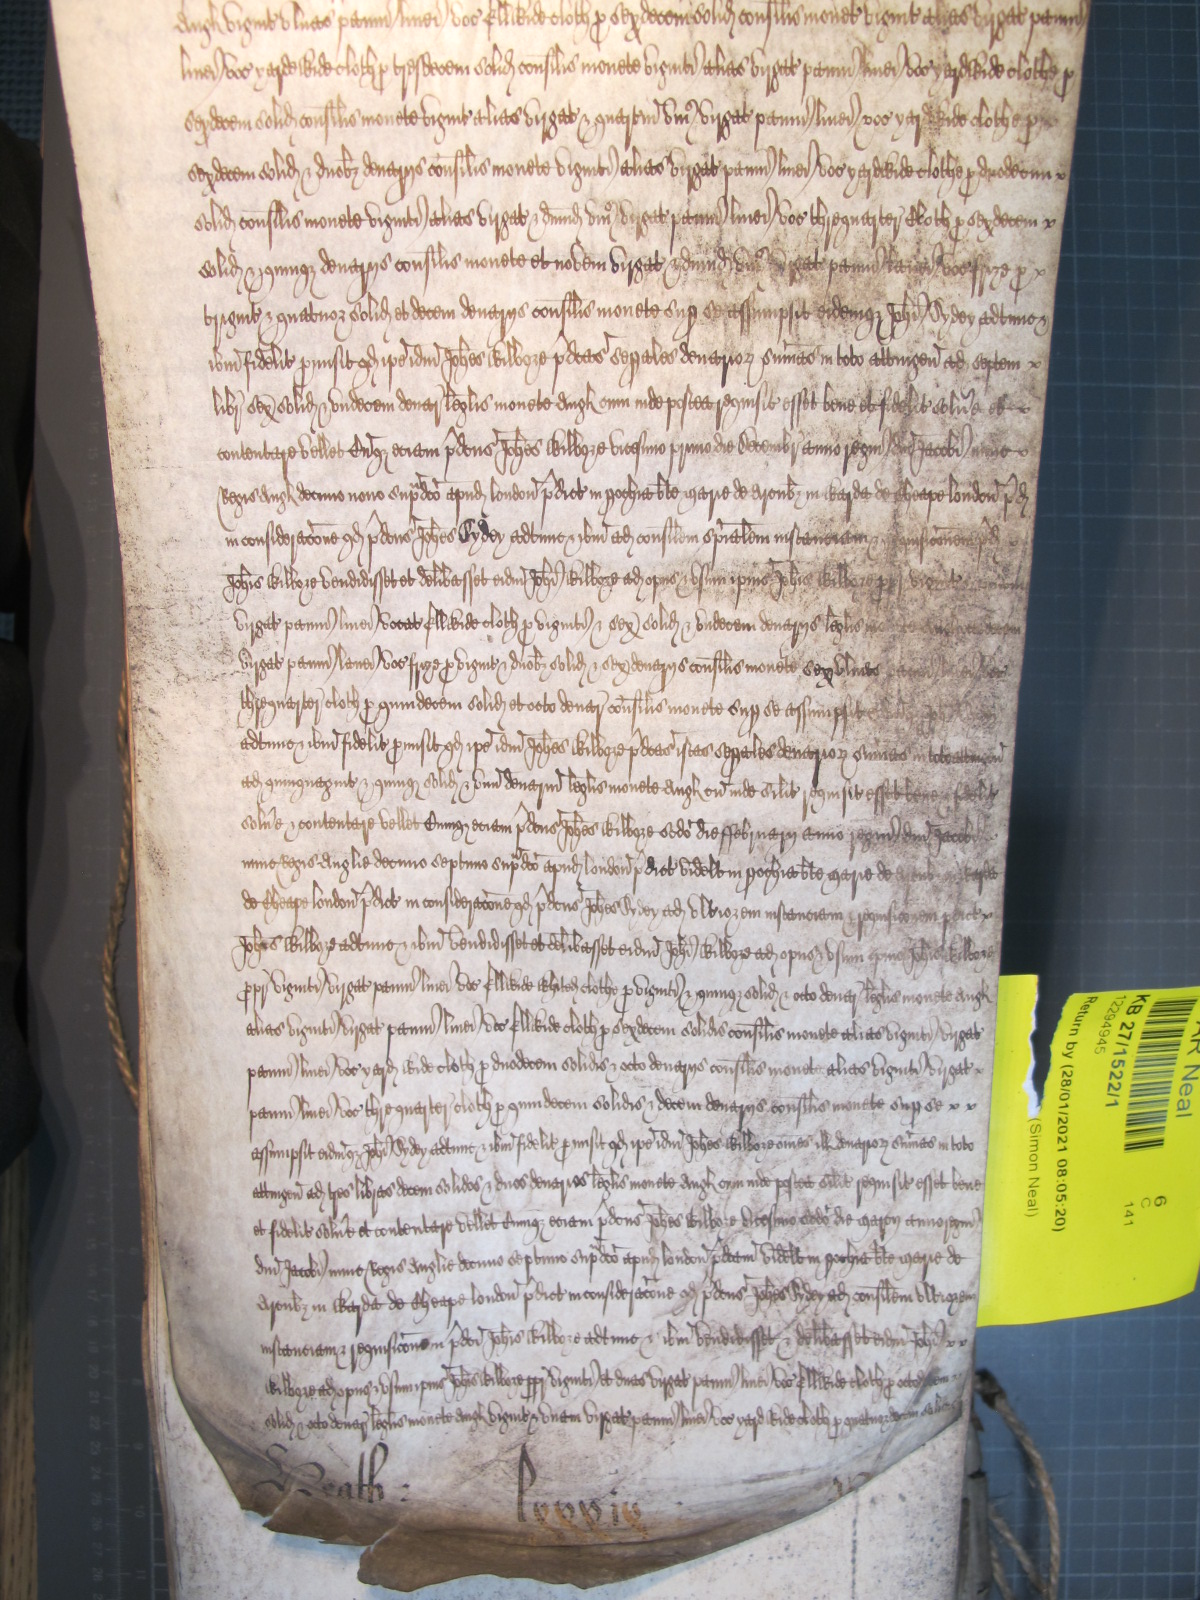 Angl vigint ulnas panni linei voc Ellwide cloth p sexdecem solid consilis monete vigint alias virgat panni
linei voc yardewide cloth p tresdecem solid consilis monete viginti alias virgat panni linei voc yardwide clothe p
sexdecem solid consilis monete vigint alias virgat & quartem uni virgat panni linei voc yardwide clothe p
sexdecem solid & duobz denarijs consilis monete viginti alias virgat panni linei voc yardewide clothe p duodecim x
solid consilis monete viginti alias virgat & dimid uni virgat panni linei voc threquarter Cloth p sexdecem x
solid & quinqz denarijs consilis monete et novem virgat & dimid virgat panni lanei voc ffryze p x
trigint & quatuor solid et decem denarijs consilis monete sup se assumpsit eidemqz Johi Sydey adtunc &
ibm fidelit pmisit qd ipe idm Johes Kilboze pdcas sepales denarioz sumas in toto attingen ad septem x
libr sex solid & undecem denar leglis monete Angl cum inde postea requisit esset bene et fidelit solve et x
contentare vellet Cumqz eciam pdcus Johes Kilboze vicesimo primo die Decembr anno regni dni Jacobi nunc x
Regis Angl decimo nono supdco apud london pdict in pochia bte Marie de Arcubz in Warda de Cheape london pd
in consideracone qd pdcus Johes Sydey adtunc & ibm ad consilem spialem instanciam & requisiconem pd
Johis Kilboze vendidisset et delibasset eidm Johi Kilboze ad opus & usum ipius Johis Kilboze ppr vigint
virgat panni linei vocat Ellwide cloth p viginti & sex solid & undecem denarijs leglis
virgat panni lanei voc ffryze p vigint & duobz solid & sex denarijs consilis monete sex ulnas panni linei voc
threquarter cloth p quindecem solid et octo denar consilis monete sup se assumpsit
adtunc & ibm fidelit pmisit qd ipe idm Johes Kilboze pdcas istas sepales denarioz sumas in toto attingen
ad quinquagint & quinqz solid & unu denariu leglis monete Angl cu inde silit requisit esset bene & fidelit
solve & contentare vellet Cumqz eciam pdcus Johes Kilboze scdo die ffebruarij anno regni dni Jacobi
nunc Regis Anglie decimo septimo supdco apud london pdict videlt in pochia bte Marie de Arcubz in Warda
de Cheape london pdict in consideracone qd pdcus Johes Sydey ad ulteriorem instanciam & requisiconem pdict x
Johis Kilboze adtunc & ibm vendidisset et delibasset eidm Johi Kilboze ad opus & usum ipius Johis Kilboze
ppr viginti virgat panni linei voc Ellwide clothe p viginti & quinqz solid & octo denar leglis monete Angl
alias viginti virgat panni linei voc Ellwide cloth p sexdecem solidis consilis monete alias viginti virgat
panni linei voc yard wide cloth p duodecem solidis & octo denarijs consilis monete alias viginti virgat x
panni linei voc threquarter cloth p quindecem solidis & decem denarijs consilis monete sup se x x
assumpsit eidmqz Johi Sydey adtunc & ibm fidelit pmisit qd ipe idm Johes Kilboze omes ill denarioz sumas in toto
attingen ad tres libras decem solidos & duos denarios leglis monete Angl cum inde postea silit requisit esset bene
et fidelit solve et contentare vellet Cumqz eciam pdcus Johes Kilboze vicesimo scdo die Marcij anno regni
dni Jacobi nunc Regis Anglie decimo septimo supdco apud london pdcam videlt in pochia bte Marie de
Arcubz in Warda de Cheape london pdict in consideracone qd pdcus Johes Sydey ad consilem ulteriorem
instanciam & requisiconem pdci Johis Kilboze adtunc & ibm vendidisset & delibasset eidm Johi x x
Kilboze ad opus & usum ipius Johis Kilboze ppr viginti et duas virgat panni linei voc Ellwide cloth p octodecem
solid & octo denar leglis monete Angl vigint & unam virgat panni linei voc yard wide cloth p quatuordecem solid
Heath
KB 27/1522/1
12294945
Return by (28/01/2021 08:05:20)
(Simon Neal)
Neal
6
C
141